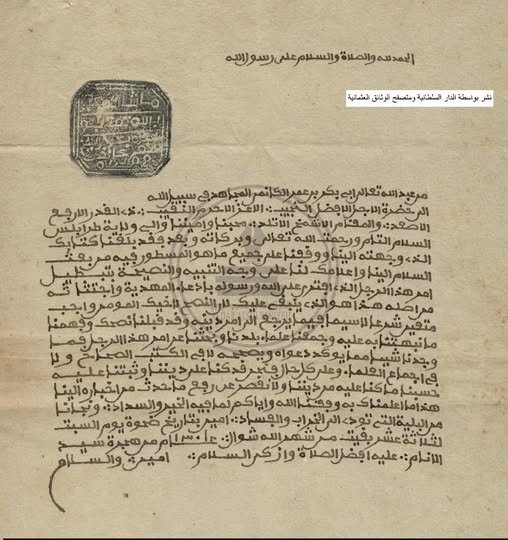 الحمد لله والصلاة والسلام على رسول الله
نشر بواسطة الدار السلطانية ومتصفح الوثائق العثمانية
من عبد الله تعالى أبي بكر بن عمر الكانمي المجاهد في سبيل الله
إلى حضرة الأجل الأفضل النجيب الأعز الأكرم النقيب ذي القدر الأرفع
الأصعد والمقام الأشمخ الأتلد محبنا وأميننا والي ولاية طرابلس
السلام التام ورحمت الله تعالى وبركاته وبعد فقد بلغنا كتابك
الذي وجهته إلينا ووقفنا على جميع ما هو المسطور فيه من بعث
السلام إلينا وإعلامك لنا على وجه التنبيه والنصيحة
أمر هذا الرجل الذي افترى على الله ورسوله بادعاء المهدية
هذا هو الذي ينبغي عليك لأن النصح لأخيك المؤمن واجب
متعين شرعا لا سيما فيما يرجع إلى أمر دينه وقد قبلنا نصحك وفهمنا
ما نبهتنا به عليه وجمعنا علماء بلدنا وبحثنا عن أمر هذا الرجل فما
وجدنا شيئا مما يوكد دعواه ويصححه لا في الكتب الصحاح ولا
في إجماع العلماء وعلى كل حال فنحن قد كنا على ديننا وثبتنا عليه
حسبنا ما كنا عليه من ديننا ولا نقصر عن رفع ما حدث من أخباره إلينا
هذا ما أعلمناك به وفقنا الله وإياكم لما فيه الخير والسداد ونجانا
من البلية التي تودي إلى الخراب والفساد امين بتاريخ ضحوة يوم السبت
لثلاثة عشر بقيت من شهر الله شوال عام من هجرة سيد
الأنام عليه أفضل الصلاة وأزكى السلام امين والسلام